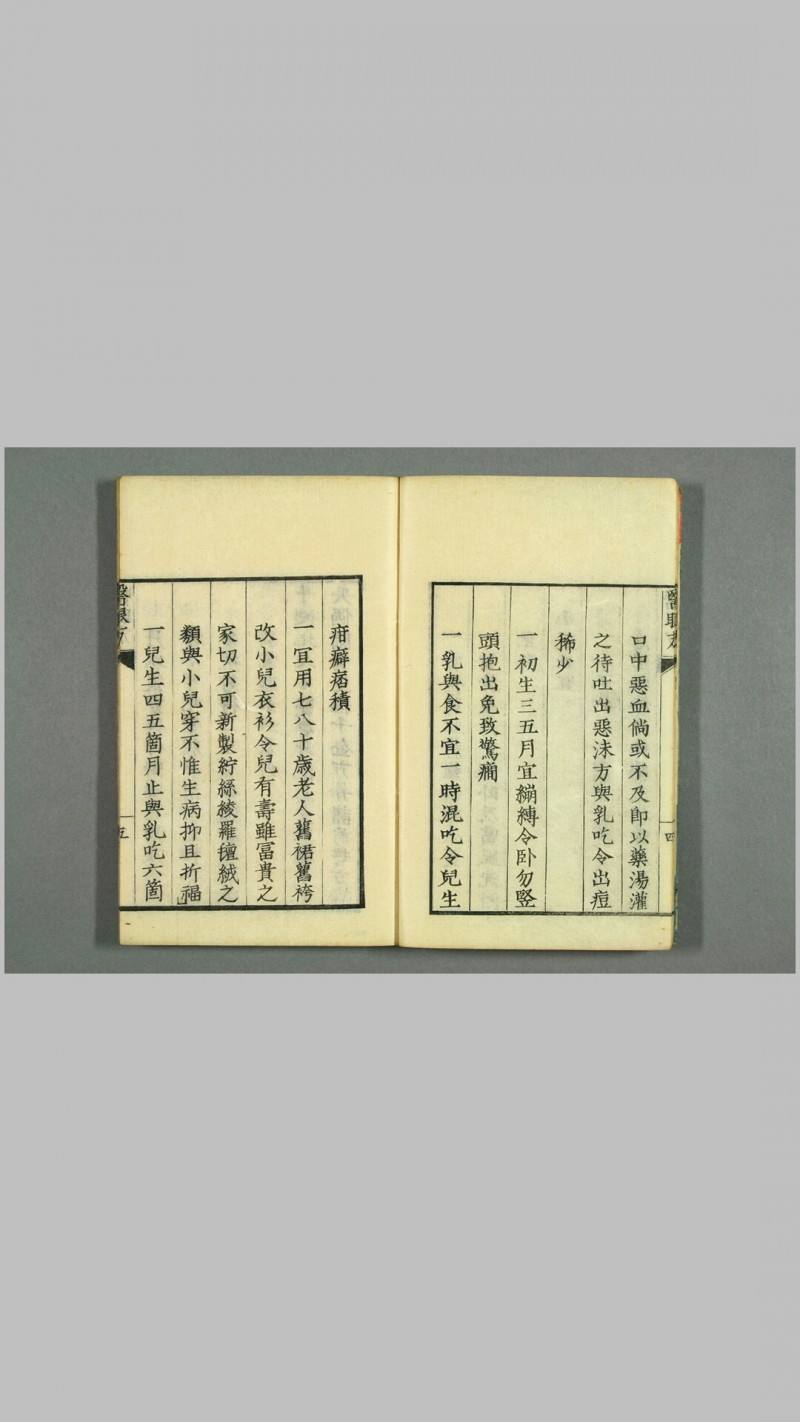 口中惡血倘或不及即以藥湯灌
之待吐出惡沫方與乳吃令出痘
稀少
一初生三五月宜繃縛令卧勿竪
頭抱出免致驚癎
一乳與食不宜一時混吃令兒生
四
疳癖痞積
一冝用七八十歳老人舊裙舊袴
改小兒衣衫令兒有壽雖冨貴之
家切不可新製紵絲綾羅氊絨之
纇與小兒穿不惟生病抑且折福
一兒生四五箇月止與乳吃六箇
五